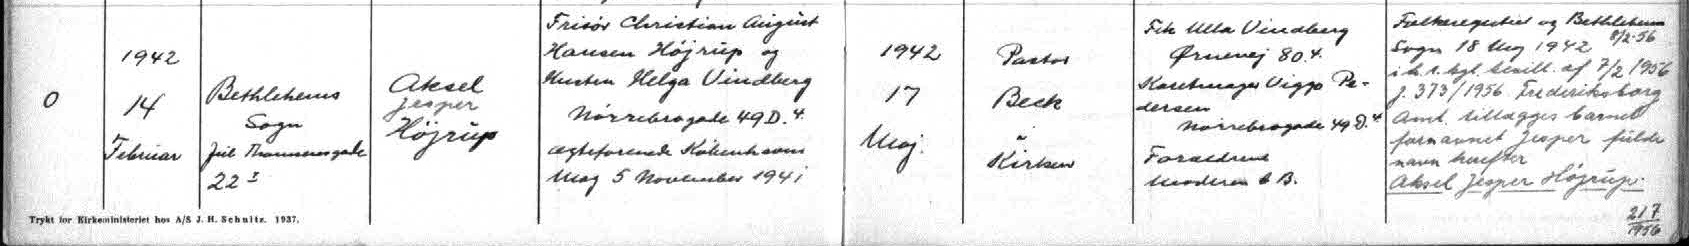 0
1942
14
Februar
Bethlehems
Sogn
Jul. Thomsensgade
22³
Aksel
Jesper
Højrup
Frisör Christian August
Hansen Højrup og
Hustru Helga Vindberg
Nörrebrogade 49 D.⁴
ægteforenede København
Mag 5 November 1941
1942
17
Maj.
Pastor
Beck
i
Kirken
Frk Ulla Vindberg
Ørnevej 80 4.
Karetmager Viggo Pe-
dersen
Nørrebrogade 49 D.⁴
Forældrene
Moderen b B.
Folkeregistret og Bethlehem
Sogn 18 Maj 1942 8/2-56
i h. t. kgl. bevill. af 7/2 1956
J. 373/1956 Frederiksborg
Amt tillægges barnet
fornavnet Jesper fulde
navn herefter
Aksel Jesper Højrup.
217
1956
Trykt for Kirkeministeriet hos A/S J. H. Schultz. 1937.